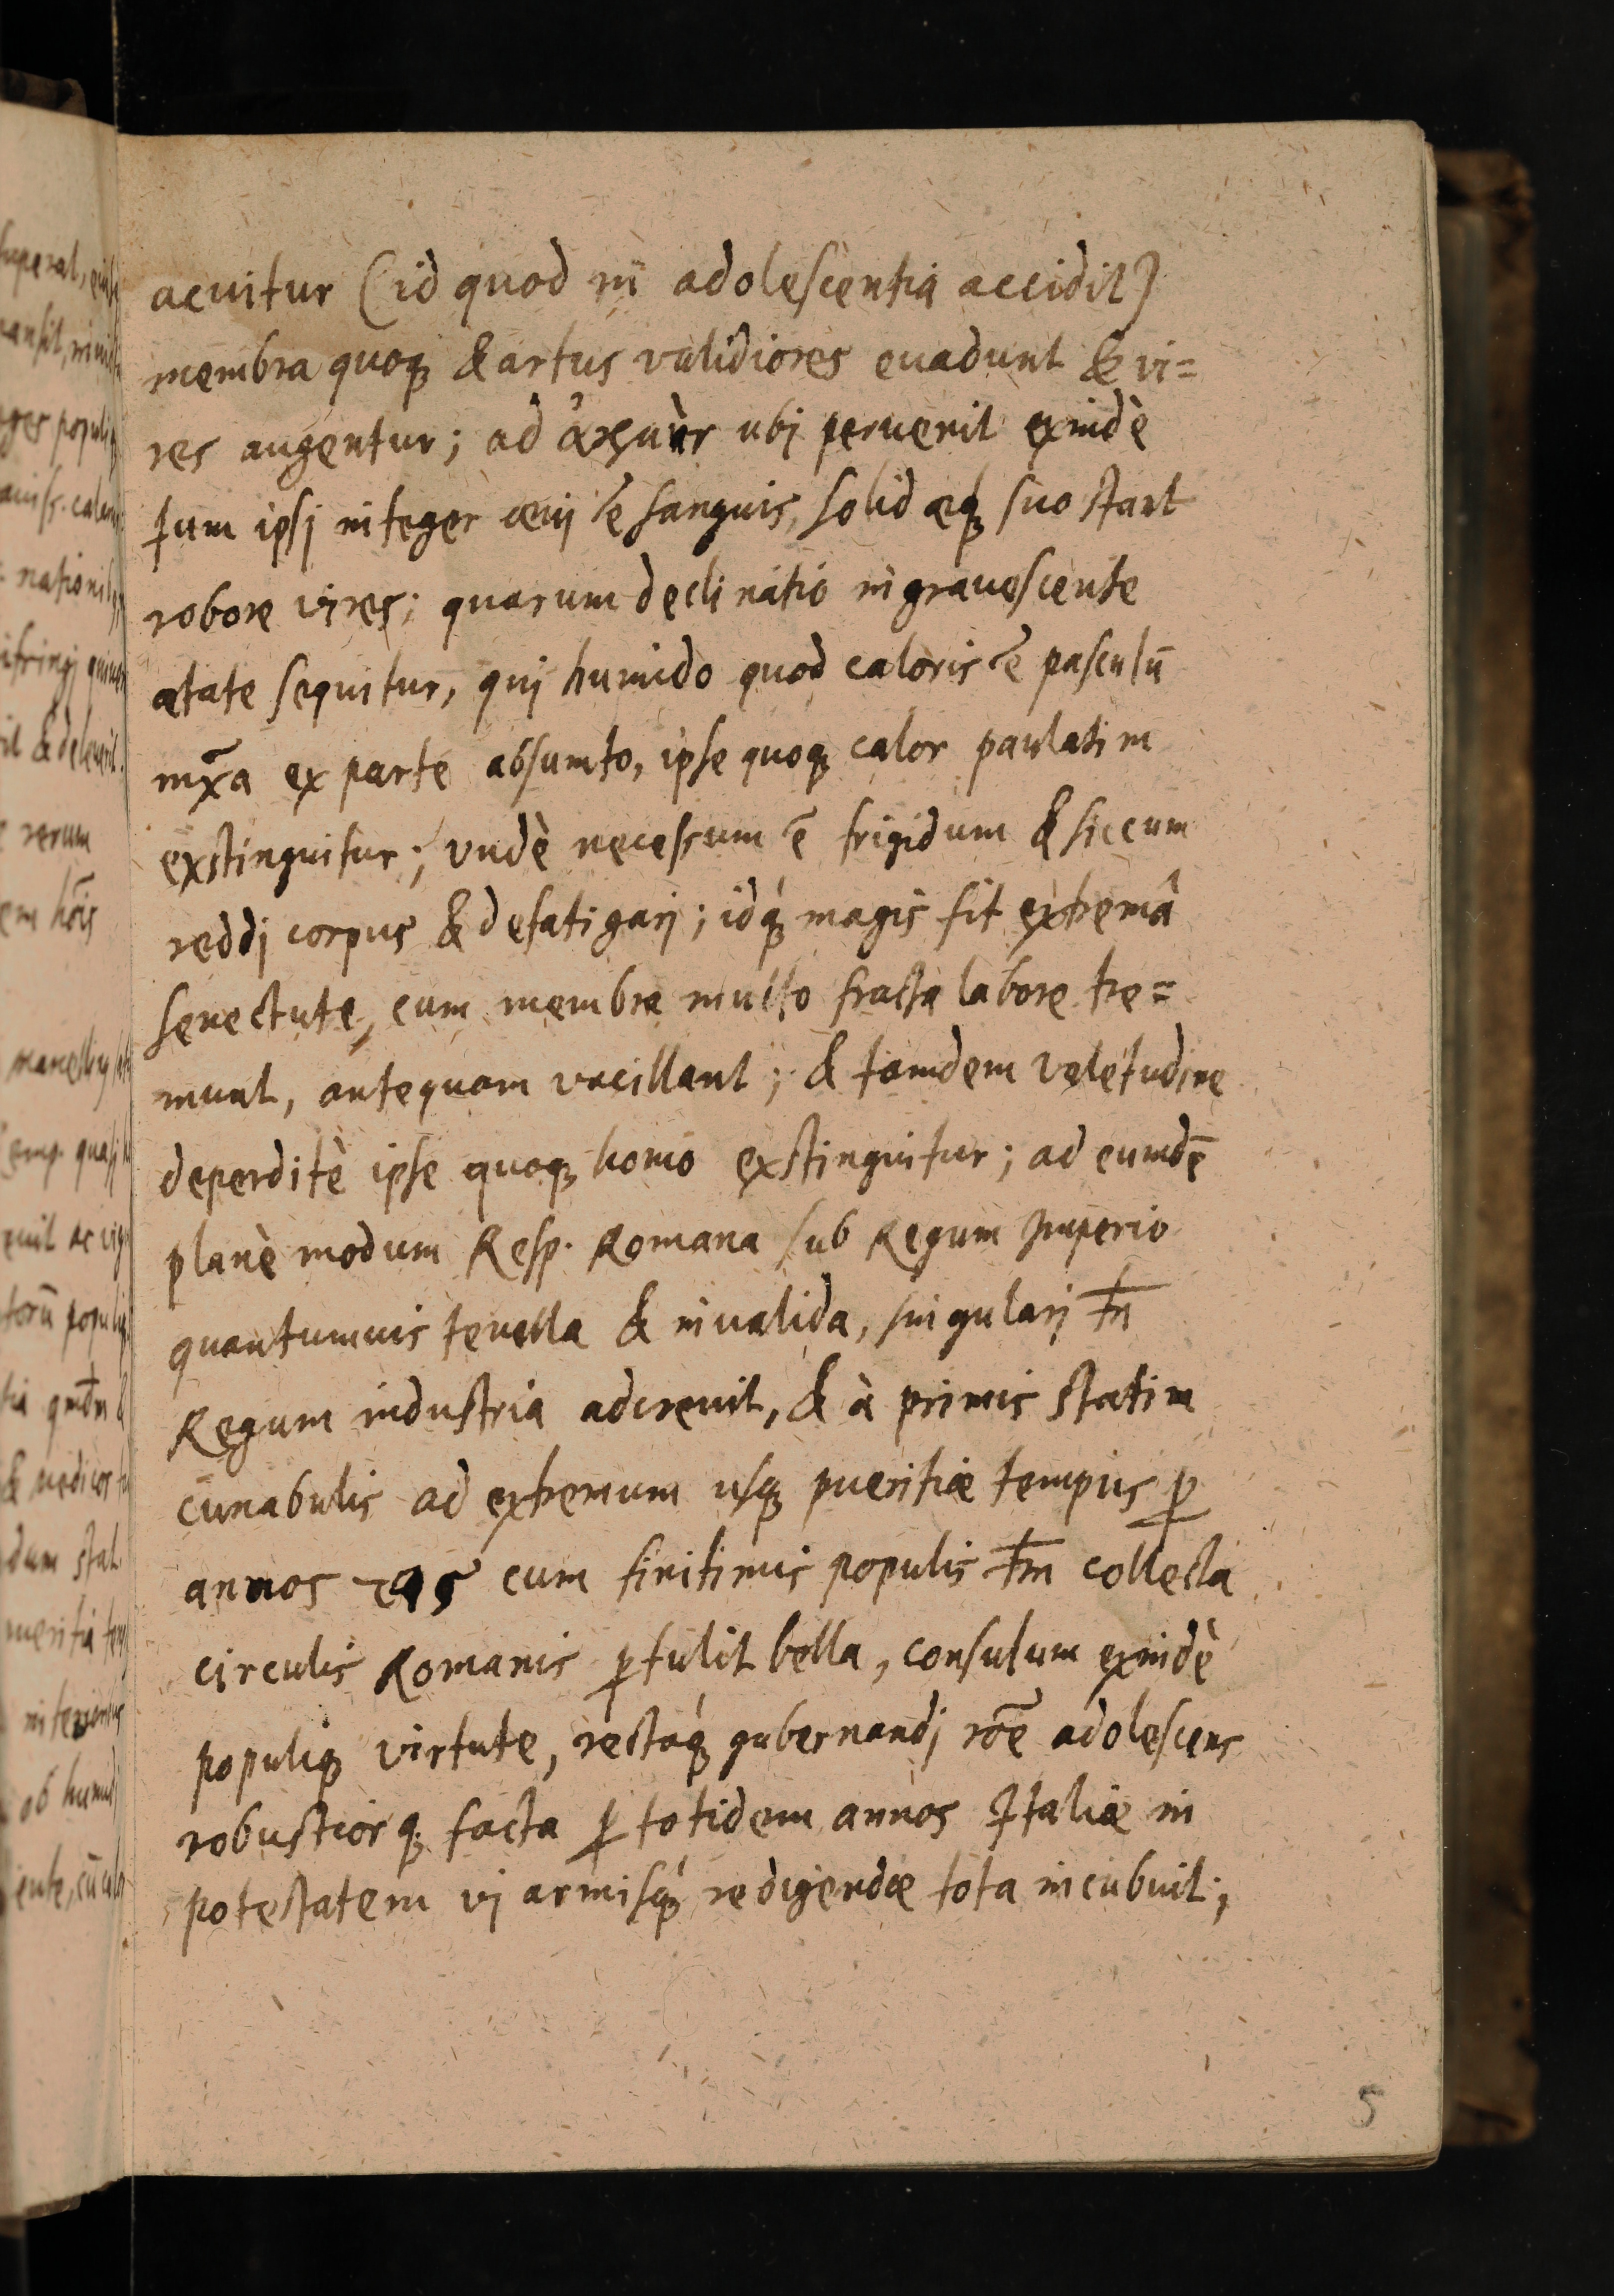 acuitur (id quod in adolescentia accidit)
membra quoq; & artus validiores euadunt & vi=
res augentur; ad ἀκμὴν ubj peruenit exindè
tum ipsj integer æuj ẽ sanguis, solidæq; suo stant
robore vires; quarum declinatio ingrauescente
ætate sequitur, quj humido quod caloris ẽ pasculũ
mx̃a ex parte absumto, ipse quoq; calor paulatim
exstinguitur; vndè necessum ẽ frigidum & siccum
reddj corpus & defatigarj; idq́; magis fit extremâ
senectute, cum membra multo fracta labore tre=
munt, antequam vacillant; & tamdem valetudine
deperditè ipse quoq; homo exstinguitur; ad eumdẽ
planè modum Resp. Romana sub Regum Imperio
quantumuis tenella & inualida, singularj tñ
Regum industria adcreuit, & à primis statim
cunabulis ad extremum usq; pueritiæ tempus ꝑ
annos cum finitimis populis tm̃ collecta
circulis Romanis ꝑtulit bella, consulum exindè
populiq; virtute, rectaq́; gubernandj rõe adolescens
robustiorq; facta ꝑ totidem annos Italiæ in
potestatem vj armisq́; redigendæ tota incubuit;
5